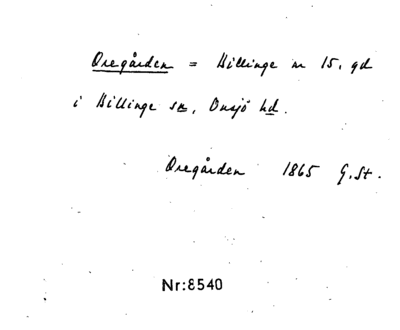 Oregården = Billinge nr 15, gd
i Billinge sn, Onsjö hd.
Oregården 1865 G.St.
Nr:8540